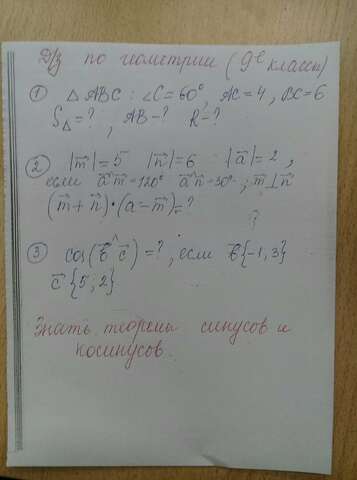 Д/з по геометрии (9е классы)
① △ABC : ∠C=60°, AC=4, BC=6
S△=?, AB-? R-?
② |m⃗|=5 |n⃗|=6 |a⃗|=2,
если a⃗^m⃗=120° a⃗^n⃗=30°; m⃗⊥n⃗
(m⃗+n⃗)•(a-m⃗)=?
?
③ cos(b⃗^c⃗)=?, если b⃗{-1,3}
c⃗{5;2}
Знать теоремы синусов и
косинусов.